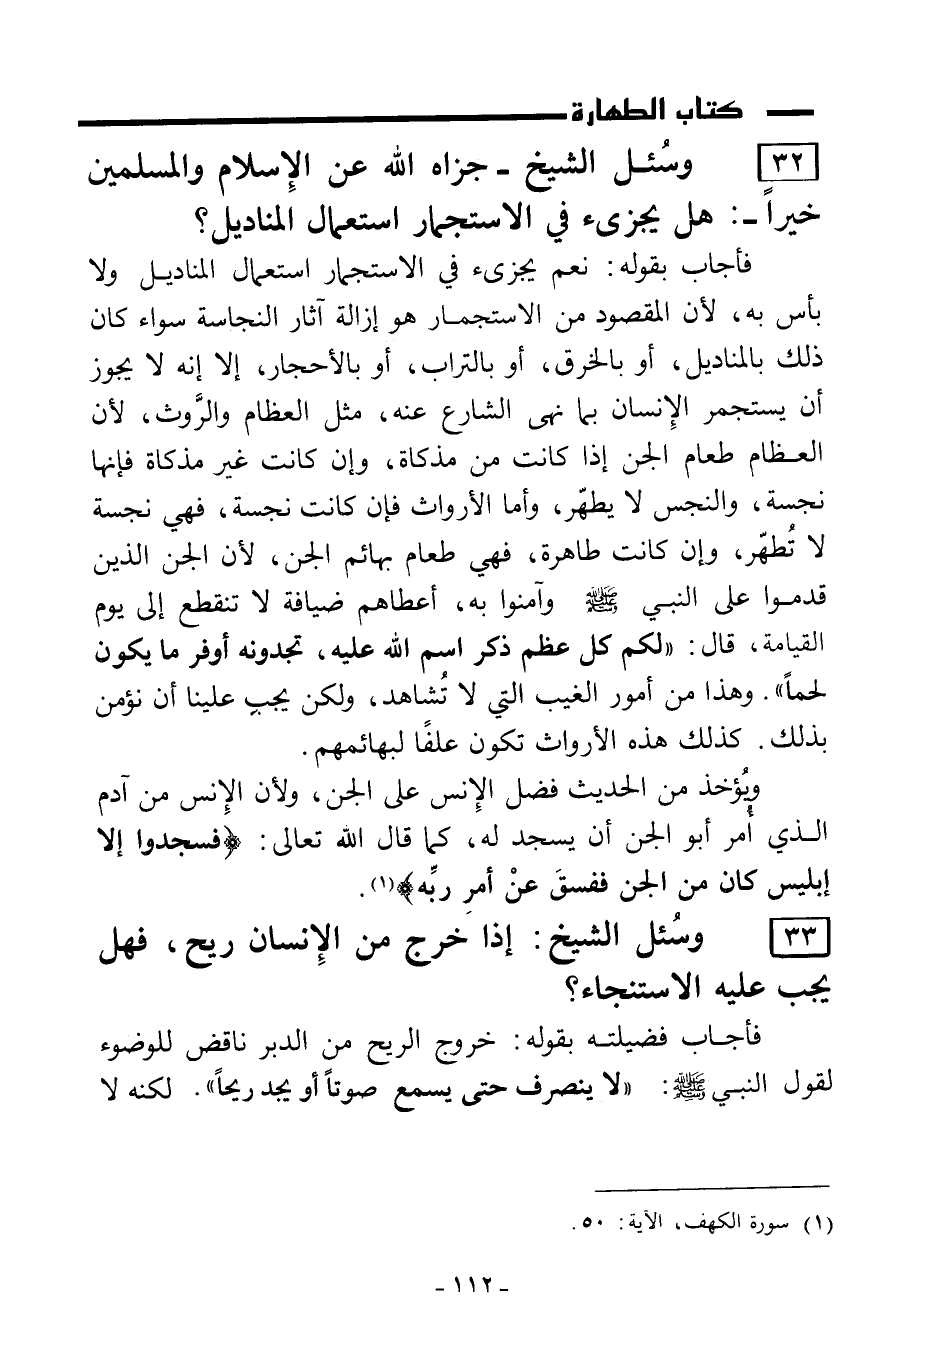 كتاب الطهارة
٣٢ وسُئل الشيخ - جزاه الله عن الإِسلام والمسلمين
خيراً -: هل يجزىء في الاستجمار استعمال المناديل؟
فأجاب بقوله: نعم يجزىء في الاستجمار استعمال المناديل ولا
بأس به، لأن المقصود من الاستجمار هو إزالة آثار النجاسة سواء كان
ذلك بالمناديل، أو بالخرق، أو بالتراب، أو بالأحجار، إلا إنه لا يجوز
أن يستجمر الإِنسان بما نهى الشارع عنه، مثل العظام والرَّوث، لأن
العظام طعام الجن إذا كانت من مذكاة، وإن كانت غير مذكاة فإنها
نجسة، والنجس لا يطهّر، وأما الأرواث فإن كانت نجسة، فهي نجسة
لا تُطهّر، وإن كانت طاهرة، فهي طعام بهائم الجن، لأن الجن الذين
قدموا على النبي ﷺ وآمنوا به، أعطاهم ضيافة لا تنقطع إلى يوم
القيامة، قال: «لكم كل عظم ذكر اسم الله عليه، تجدونه أوفر ما يكون
لحماً». وهذا من أمور الغيب التي لا تُشاهد، ولكن يجب علينا أن نؤمن
بذلك. كذلك هذه الأرواث تكون علفًا لبهائمهم.
ويُؤخذ من الحديث فضل الإِنس على الجن، ولأن الإِنس من آدم
الذي أُمر أبو الجن أن يسجد له، كما قال الله تعالى: ﴿فسجدوا إلا
إبليس كان من الجن ففسقَ عنْ أمرِ ربِّه﴾(١).
٣٣ وسُئل الشيخ: إذا خرج من الإِنسان ريح، فهل
يجب عليه الاستنجاء؟
فأجاب فضيلته بقوله: خروج الريح من الدبر ناقض للوضوء
لقول النبي ﷺ: «لا ينصرف حتى يسمع صوتاً أو يجد ريحاً». لكنه لا
(١) سورة الكهف، الآية: ٥٠.
- ١١٢ -